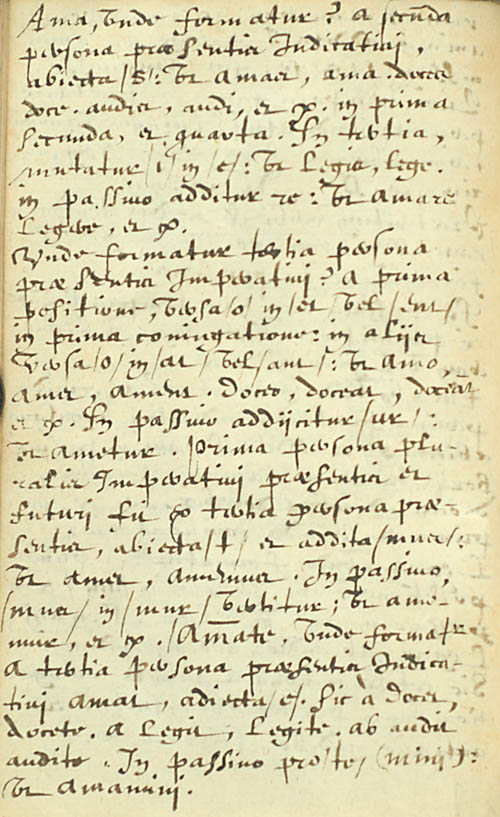 Ama, vnde formatur? a secunda
persona præsentis Indicatiui,
abiecta /s/: vt amas, ama. doces
doce. audis, audi, et c. in prima
secunda, et quarta. In tertia,
mutatur /i/ in /e/: vt Legis, lege.
in passiuo additur re: vt Amare
Legere, et c.
Vnde formatur tertia persona
præsentis Imperatiui? a prima
positione, versa /o/ in /et/ vel /ent/
in prima coniugatione: in alijs
versa /o/ in /at/ vel /ant/: vt Amo,
amet, ament. doceo, doceat, doceāt
et c. In passiuo addijcitur /ur/:
vt ametur. Prima persona plu-
ralis Imperatiui præsentis et
futuri fit ex tertia persona præ-
sentis, abiecta /t/ et addita /mus/:
vt amet, amemus. In passiuo,
/mus/ in /mur/ vertitur; vt ame-
mur, et c. /Amate, vnde formatr
A tertia persona præsentis Indica-
tiui amat, adiecta /e/. sic a docet,
docete. a legit, Legite. ab audit
audite. In passiuo pro /te/ (mini):
vt amamini.